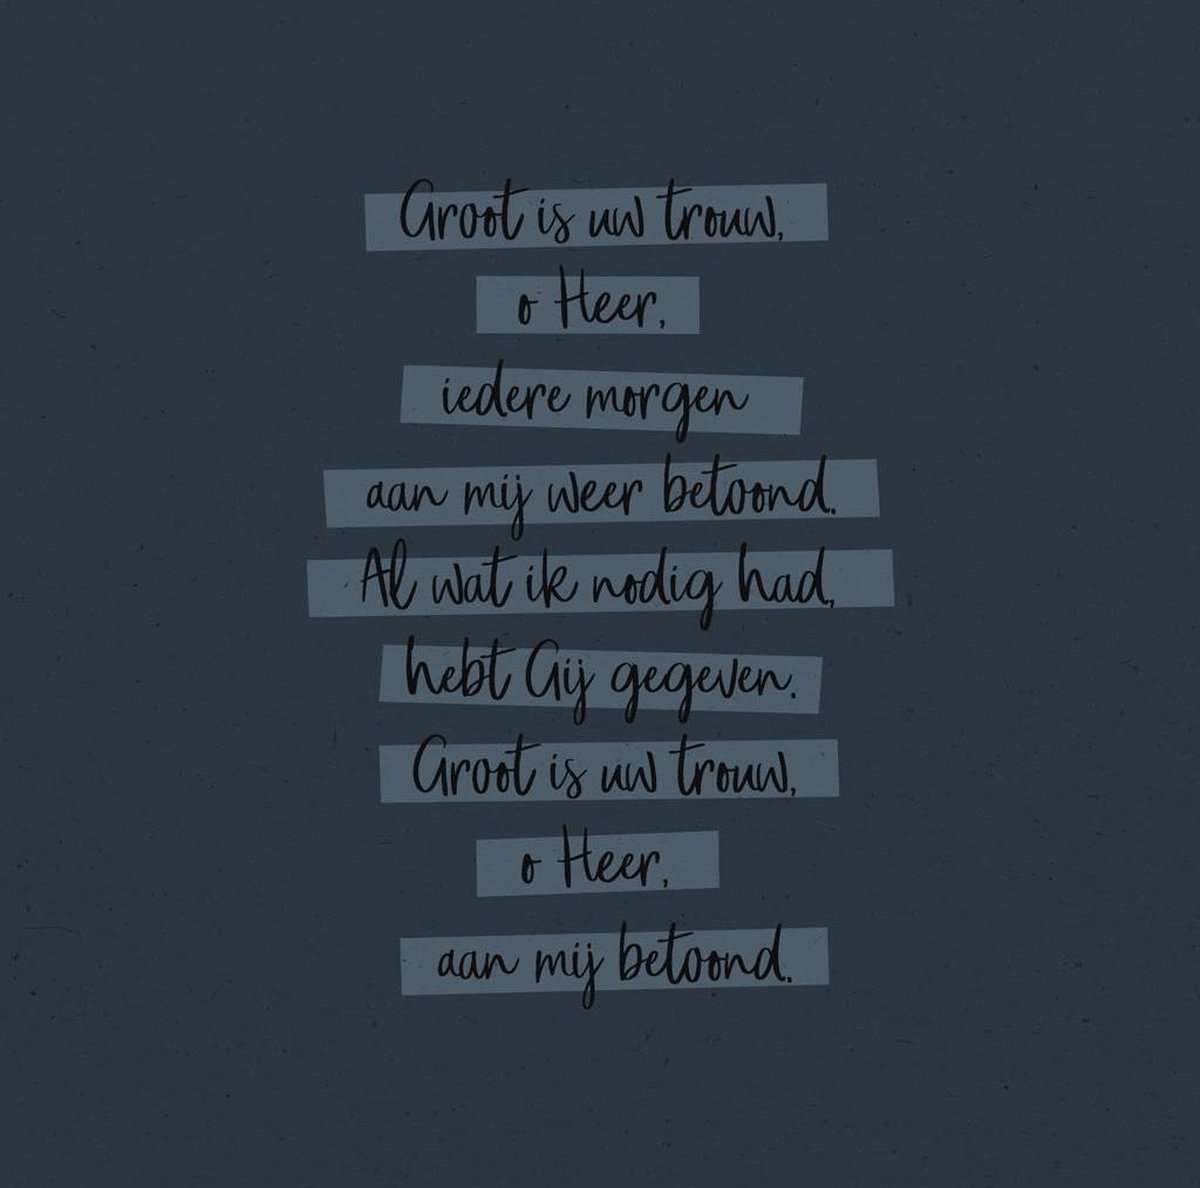 Groot is uw trouw,
o Heer,
iedere morgen
aan mij weer betoond.
Al wat ik nodig had,
hebt Gij gegeven.
Groot is uw trouw,
o Heer,
aan mij betoond.